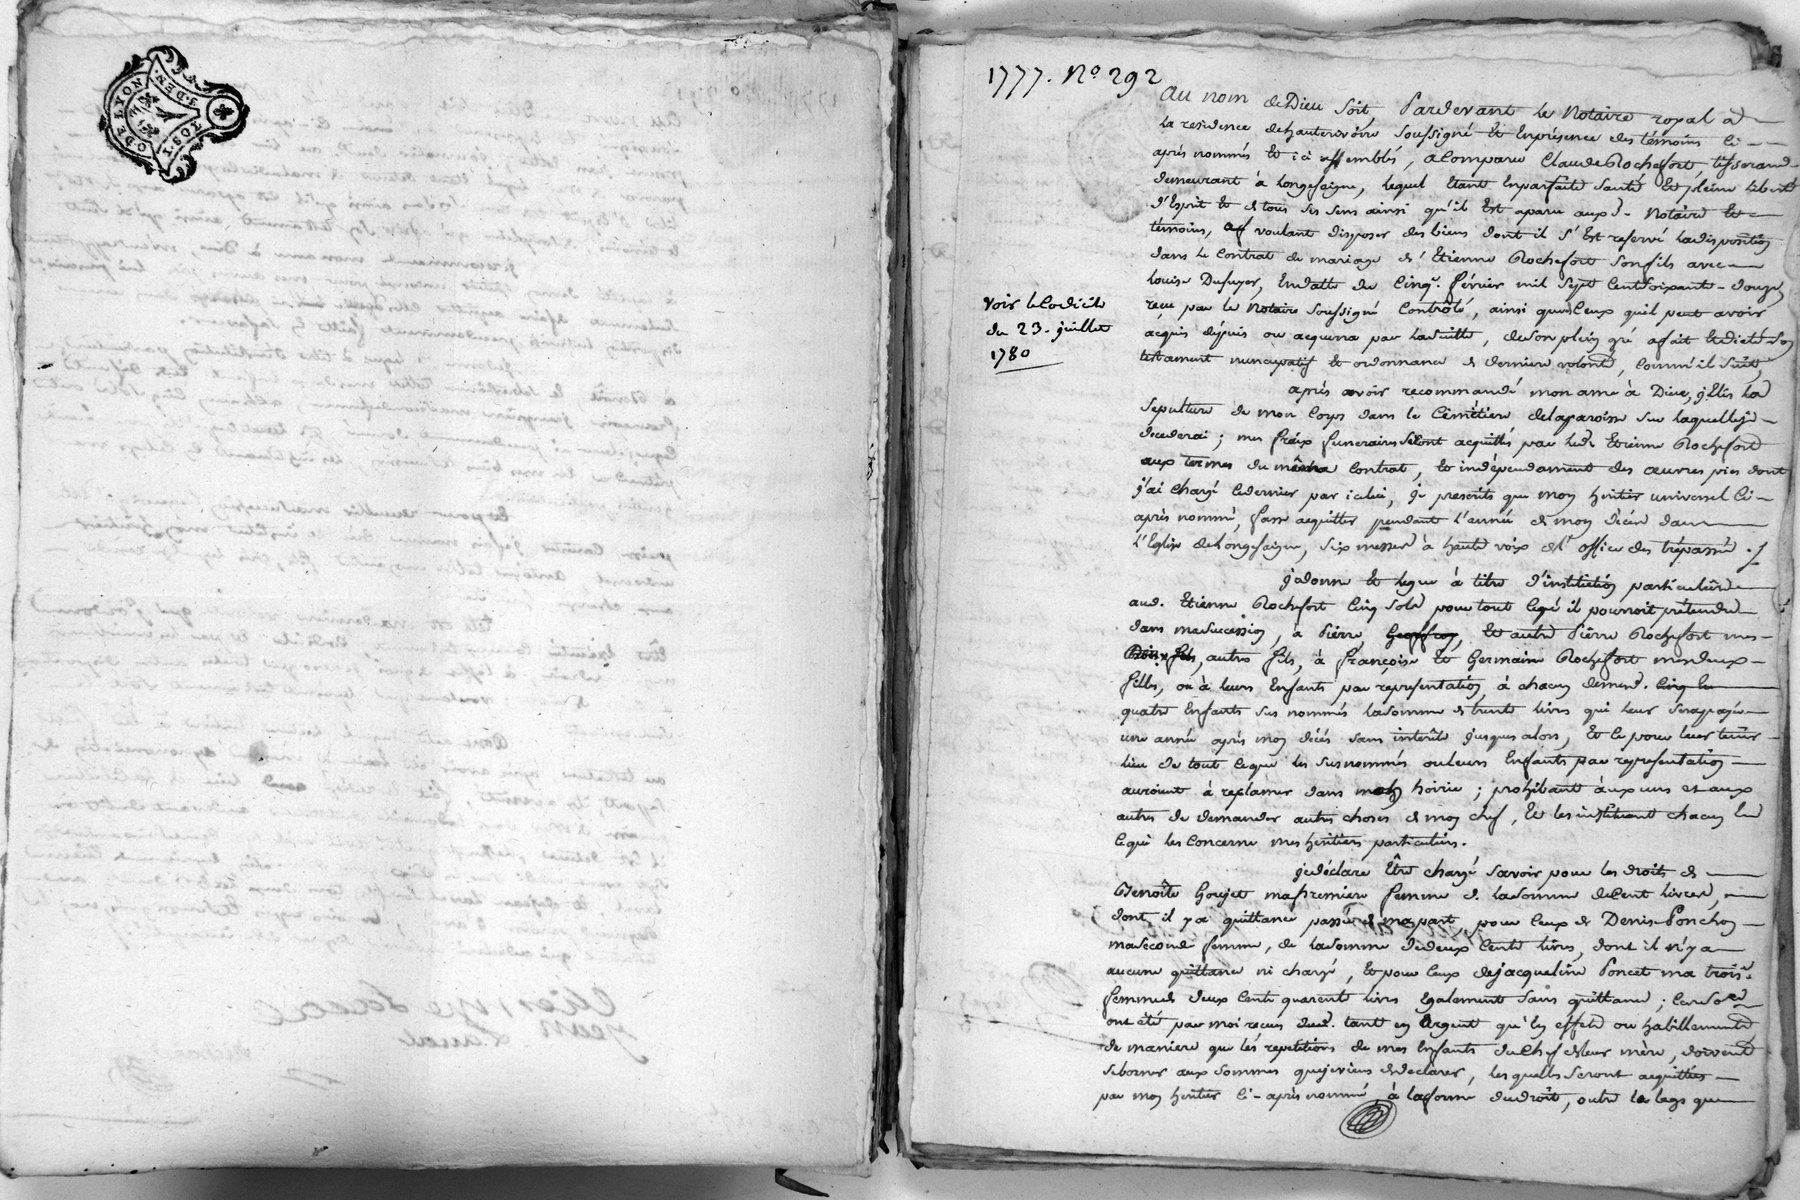 GD DE LYON
3. DEN.
1777. No. 292
Au nom de Dieu soit, Pardevant le Notaire royal à
la residence de hauterivoire soussigné et En présence des témoins Ci-
après nommés Et ici assemblés, a Comparu Claude Rochefort, tisserand
demeurant à Longesaigne, lequel Etant En parfaite santé Et pleine Liberté
d'Esprit Et de tous ses sens ainsi qu'il Est aparu auxd. Notaire Et
témoins, voulant disposer des biens dont il s'Est reservé la disposition
dans le Contrat de mariage d'Etienne Rochefort son fils avec
Louise Dufuyer, En datte du Cinq. février mil sept Cent soixante-douze
reçu par le Notaire soussigné Contrôlé, ainsi que de Ceux qu'il peut avoir
acquis depuis ou acquerra par la suitte, de son plein gré a fait Et dicté son
testament nuncupatif Et ordonnance de derniere volonté, comme il suit,
Voir le Codicile
du 23. juillet
1780
après avoir recommandé mon ame à Dieu, j'Elis la
sepulture de mon Corps dans le Cimetière de la paroisse sur laquelle je
decederai ; mes fraix funeraires seront acquittés par led. Etienne Rochefort
aux termes du même Contrat, Et indépendament des œuvres pies dont
j'ai Chargé Ce dernier par icelui, je prescrits que mon héritier universel Ci-
après nommé, fasse acquitter pendant l'année de mon décès dans
L'Eglise de Longesaigne, six messes à haute voix de l'office des trépassés ./.
je donne Et legue à titre d'institution particulière
aud. Etienne Rochefort Cinq sols pour tout Ce qu'il pourroit prétendre
dans ma succession, à Pierre, Geoffroy, Et autre Pierre Rochefort mes
autres fils, à Françoise Et Germaine Rochefort mes deux
filles, ou à leurs Enfants par representation, à chacun desmêmes.
quatre Enfants sus nommés la somme de trente livres qui leur sera payée
une année après mon décès sans interêts jusques alors, Et Ce pour leur tenir
lieu de tout Ce que les susnommés ou leurs Enfants par representation
auroient à reclamer dans mon hoirie ; prohibant aux uns et aux
autres de demander autres choses de mon chef, Et les instituant chacun En
Ce qui les Concerne mes héritiers particuliers.
je déclare Etre chargé savoir pour les droits de
Benoîte Goujet ma premiere femme de la somme de Cent livres,
dont il y a quittance passée de ma part, pour Ceux de Denise Ponchon
ma seconde femme, de la somme de deux Cents livres, dont il n'y a
aucune quittance ni chargé, Et pour Ceux de jacqueline Poncet ma trois.e
femme de deux Cents quarente livres Egalement sans quittance ;
ont été par moi reçues tant En Argent qu'En effets ou habillements
de maniere que les repetitions de mes Enfants du Chef de leur mère, doivent
se borner aux sommes que je viens de declarer, lesquelles seront acquittées
par mon héritier Ci-après nommé, à la forme du droit, outre le legs que